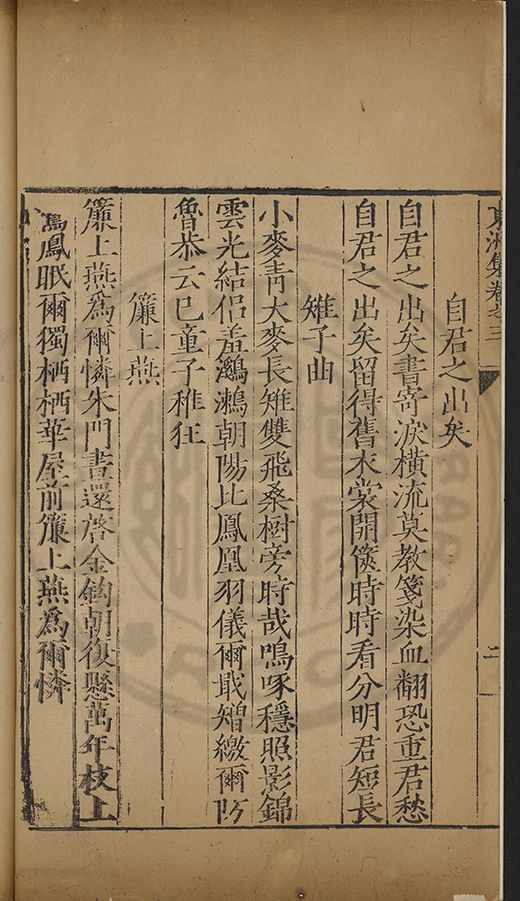 東洲集卷之三
二
自君之出矣
自君之出矣書寄淚橫流莫教箋染血翻恐重君愁
自君之出矣留得舊衣裳開篋時時看分明君短長
雉子曲
小麥青大麥長雉雙飛桑樹旁時哉鳴啄穩照影錦
雲光結侶羞鸂鶒朝陽比鳳凰羽儀爾戢矰繳爾防
魯恭云已童子稚狂
簾上燕
簾上燕爲爾憐朱門晝還啓金鉤朝復懸萬年枝上
鳳眠爾獨栖栖華屋前簾上燕爲爾憐